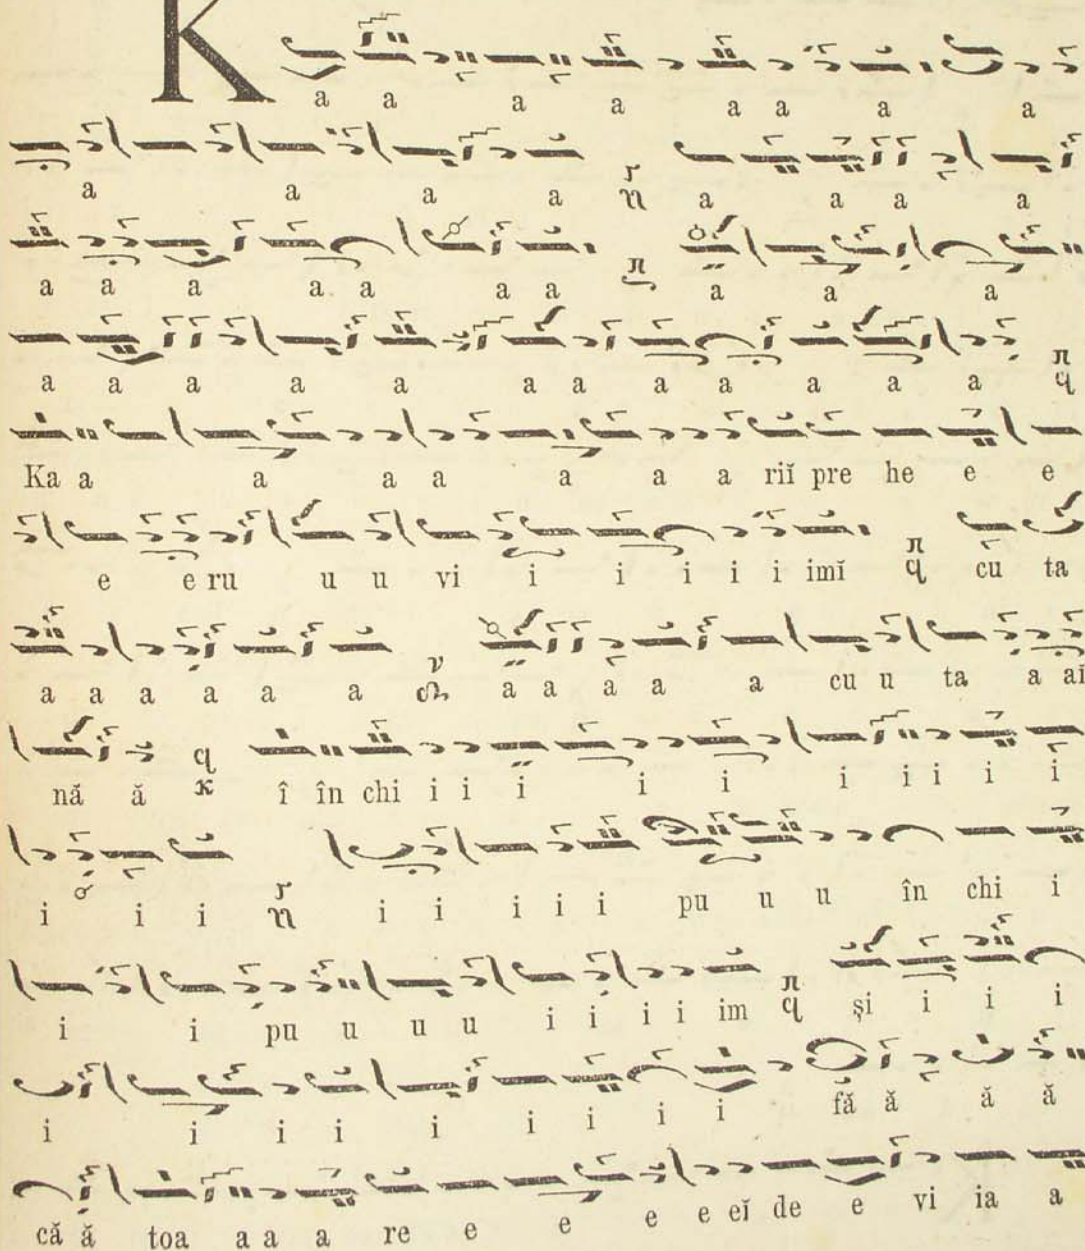 K
a a a a a a a a
a a a a a a a a
a a a a a a a a a a
a a a a a a a a a a a a
Ka a a a a a a a riĭ pre he e e
e e ru u u vi i i i i i imĭ cu ta
a a a a a a a a a a a cu u ta a aĭ
nă ă î în chi i i i i i i i i i i
i i i i i i i i pu u u în chi i
i i pu u u u i i i i im și i i i
i i i i i i i i i fă ă ă ă
că ă toa a a a re e e e e eĭ de e vi ia a